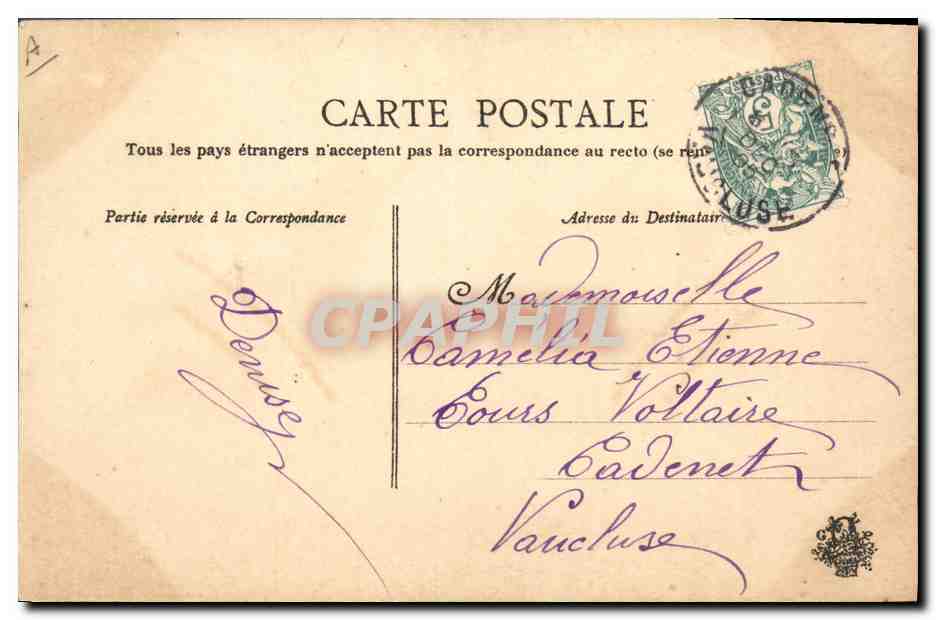 A
CARTE POSTALE
Tous les pays étrangers n'acceptent pas la correspondance au recto (se ren
Partie réservée à la Correspondance
Adresse du Destinatair
CADENET
VAUCLUSE
Mademoiselle
Camelia Etienne
Cours Voltaire
Cadenet
Vaucluse
Denisey
CPAPHIL